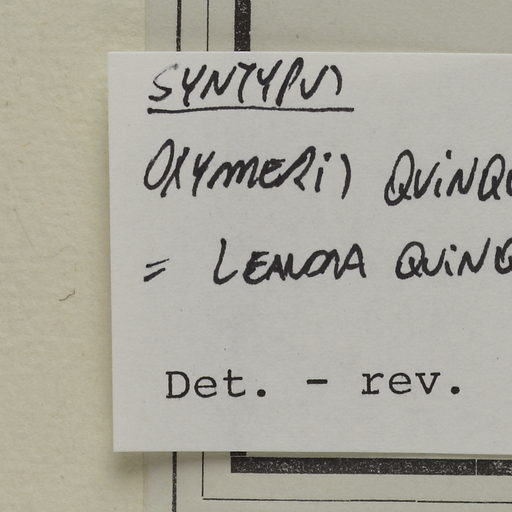 SYNTYPUS
OXYMERIS QUINQU
= LEANDRA QUINQ
Det. - rev.